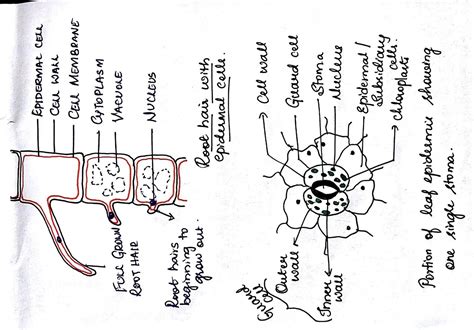 EPIDERMAL CELL
CELL WALL
CELL MEMBRANE
CYTOPLASM
VACUOLE
NUCLEUS
FULL GROWN
ROOT HAIR
Root hairs
beginning to
grow out.
Root hair with
epidermal cells.
Cell wall
Guard cell
Stoma
Nucleus
Epidermal/
Subsidiary
cells.
chloroplasts
Guard
Cell
Outer
wall
Inner
wall
Portion of leaf epidermis showing
one single stoma.